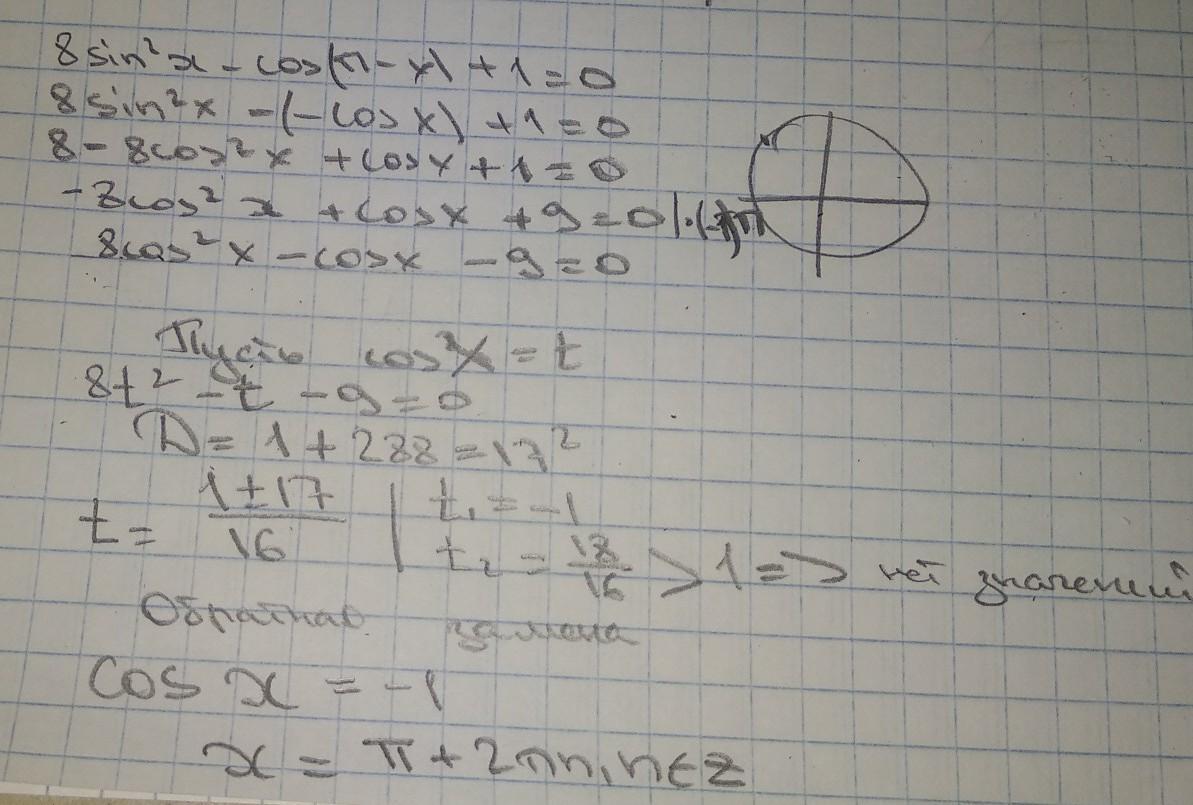 8sin²x - cos(π - x) + 1 = 0
8sin²x - (-cosx) + 1 = 0
8 - 8cos²x + cosx + 1 = 0
-8cos²x + cosx + 9 = 0 |·(-1)
8cos²x - cosx - 9 = 0
Пусть cosx = t
8t² - t - 9 = 0
D = 1 + 288 = 17²
t = (1 ± 17)/16 | t₁ = -1
t₂ = 18/16 > 1 => нет значений
Обратная замена
cos x = -1
x = π + 2πn, n∈Z